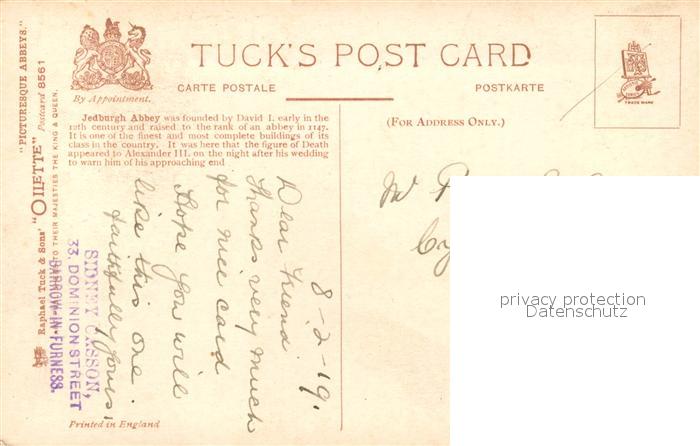 "PICTURESQUE ABBEYS."
Raphael Tuck & Sons' "OILETTE" Postcard 8561
TO THEIR MAJESTIES THE KING & QUEEN.
By Appointment.
TUCK'S POST CARD
CARTE POSTALE
POSTKARTE
(FOR ADDRESS ONLY.)
TRADE MARK
Jedburgh Abbey was founded by David I. early in the
12th century and raised to the rank of an abbey in 1147.
It is one of the finest and most complete buildings of its
class in the country. It was here that the figure of Death
appeared to Alexander III. on the night after his wedding
to warn him of his approaching end
8-2-19.
Dear Friend
Thanks very much
for nice card
Hope you will
like this one.
faithfully yours!
SIDNEY CASSON,
33, DOMINION STREET
BARROW-IN-FURNESS.
Mr
Printed in England
privacy protection
Datenschutz